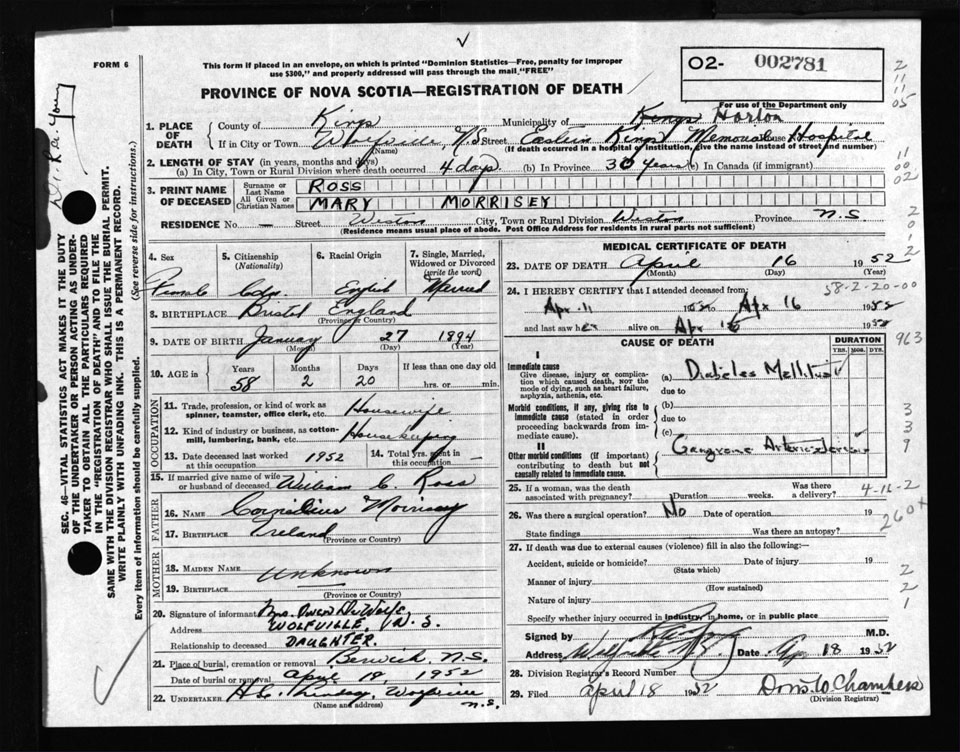 FORM 6
This form if placed in an envelope, on which is printed "Dominion Statistics—Free, penalty for improper
use $300," and properly addressed will pass through the mail "FREE"
PROVINCE OF NOVA SCOTIA—REGISTRATION OF DEATH
O2- 002781
For use of the Department only
2
11
11
05
11
00
02
2
0
1
2
Dr. R.a. Young
SEC. 46—VITAL STATISTICS ACT MAKES IT THE DUTY
OF THE UNDERTAKER OR PERSON ACTING AS UNDER-
TAKER TO OBTAIN ALL THE PARTICULARS REQUIRED
IN THE "REGISTRATION OF DEATH" AND TO FILE THE
SAME WITH THE DIVISION REGISTRAR WHO SHALL ISSUE THE BURIAL PERMIT.
WRITE PLAINLY WITH UNFADING INK. THIS IS A PERMANENT RECORD.
Every item of information should be carefully supplied.
(See reverse side for instructions.)
1. PLACE OF DEATH
County of Kings Municipality of Kings Horton
If in City or Town Wolfville, N.S. Street Eastern Kings Memorial House Hospital
(Name) (If death occurred in a hospital or institution, give the name instead of street and number)
2. LENGTH OF STAY (in years, months and days)
(a) In City, Town or Rural Division where death occurred 4 days (b) In Province 30 years (c) In Canada (if immigrant)
3. PRINT NAME OF DECEASED
Surname or Last Name ROSS
All Given or Christian Names MARY MORRISEY
RESIDENCE No. — Street Weston City, Town or Rural Division Weston Province N.S.
(Residence means usual place of abode. Post Office Address for residents in rural parts not sufficient)
4. Sex
5. Citizenship (Nationality)
6. Racial Origin
7. Single, Married, Widowed or Divorced (write the word)
Female Cdn. English Married
8. BIRTHPLACE Bristol England
(Province or Country)
9. DATE OF BIRTH January 27 1894
(Month) (Day) (Year)
10. AGE in Years Months Days If less than one day old
58 2 20 hrs. or min.
OCCUPATION
11. Trade, profession, or kind of work as
spinner, teamster, office clerk, etc. Housewife
12. Kind of industry or business, as cotton-
mill, lumbering, bank, etc. Housekeeping
13. Date deceased last worked
at this occupation 1952
14. Total yrs. spent in
this occupation —
15. If married give name of wife
or husband of deceased William C. Ross
FATHER
16. NAME Cornelius Morrisey
17. BIRTHPLACE Ireland
(Province or Country)
MOTHER
18. MAIDEN NAME Unknown
19. BIRTHPLACE
(Province or Country)
20. Signature of informant Mrs. Owen DeWolfe
Address WOLFVILLE, N.S.
Relationship to deceased DAUGHTER.
21. Place of burial, cremation or removal Berwick, N.S.
Date of burial or removal April 18, 1952
22. UNDERTAKER Wolfville N.S.
(Name and address)
MEDICAL CERTIFICATE OF DEATH
23. DATE OF DEATH April 16 1952
(Month) (Day) (Year)
58-2-20-00
24. I HEREBY CERTIFY that I attended deceased from:
Apr. 11 1952 Apr 16 1952
and last saw her alive on Apr 16 1952
CAUSE OF DEATH
DURATION
YRS. MOS. DYS.
963
I
Immediate cause
Give disease, injury or complica-
tion which caused death, not the
mode of dying, such as heart failure,
asphyxia, asthenia, etc.
(a) Diabetes Mellitus
due to
Morbid conditions, if any, giving rise to
immediate cause (stated in order
proceeding backwards from im-
mediate cause).
(b)
due to
(c)
II
Other morbid conditions (if important)
contributing to death but not
causally related to immediate cause.
Gangrene Arteriosclerosis
3
3
9
25. If a woman, was the death
associated with pregnancy? Duration weeks. Was there a delivery?
4-16-2
26. Was there a surgical operation? No Date of operation 19
260+
State findings Was there an autopsy?
27. If death was due to external causes (violence) fill in also the following:—
Accident, suicide or homicide? Date of injury 19
(State which)
Manner of injury
(How sustained)
Nature of injury
Specify whether injury occurred in industry, in home, or in public place
2
2
1
Signed by M.D.
Address Wolfville N.S. Date Ap 18 1952
28. Division Registrar's Record Number
29. Filed April 18 1952
(Division Registrar)